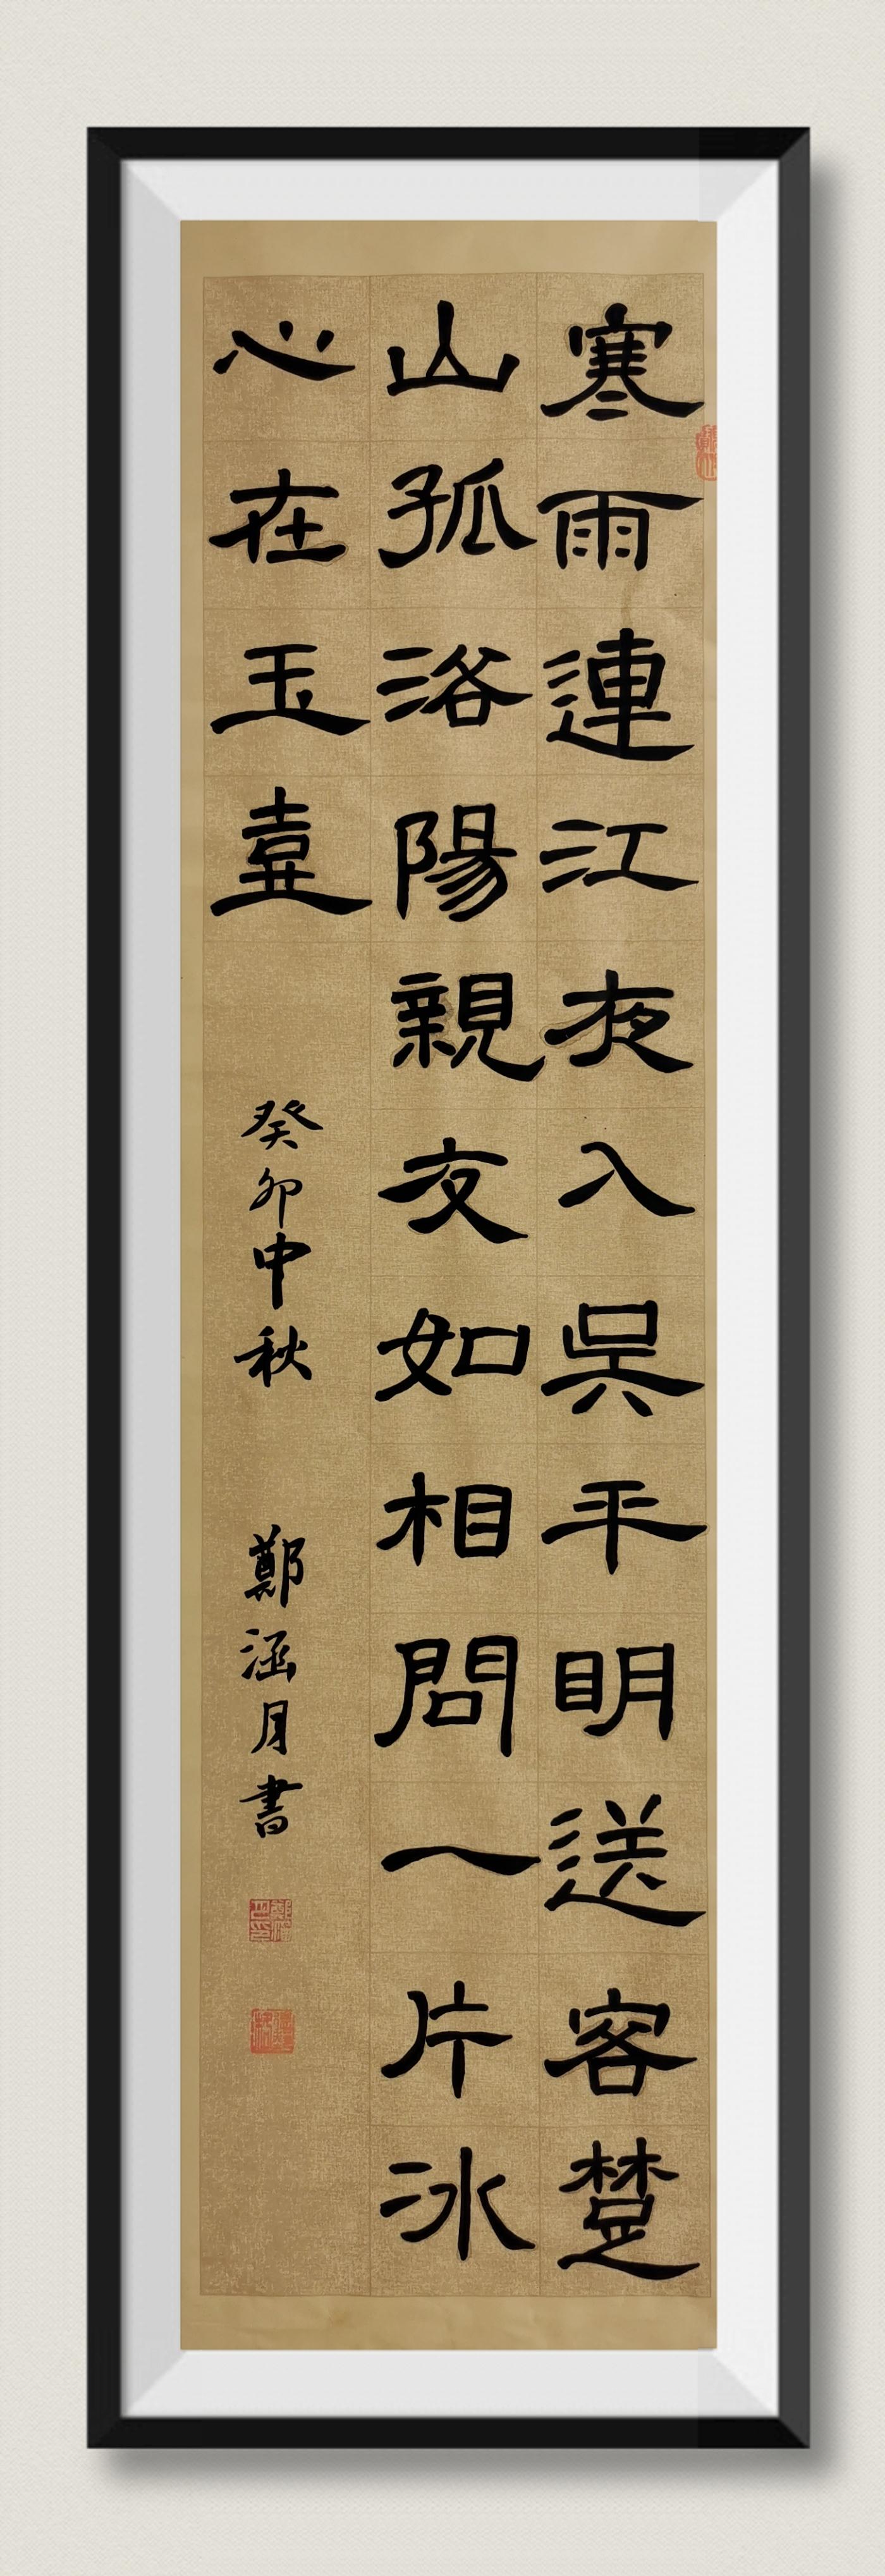 寒雨連江夜入吳平明送客楚
山孤洛陽親友如相問一片冰
心在玉壺
癸卯中秋 鄭涵月書